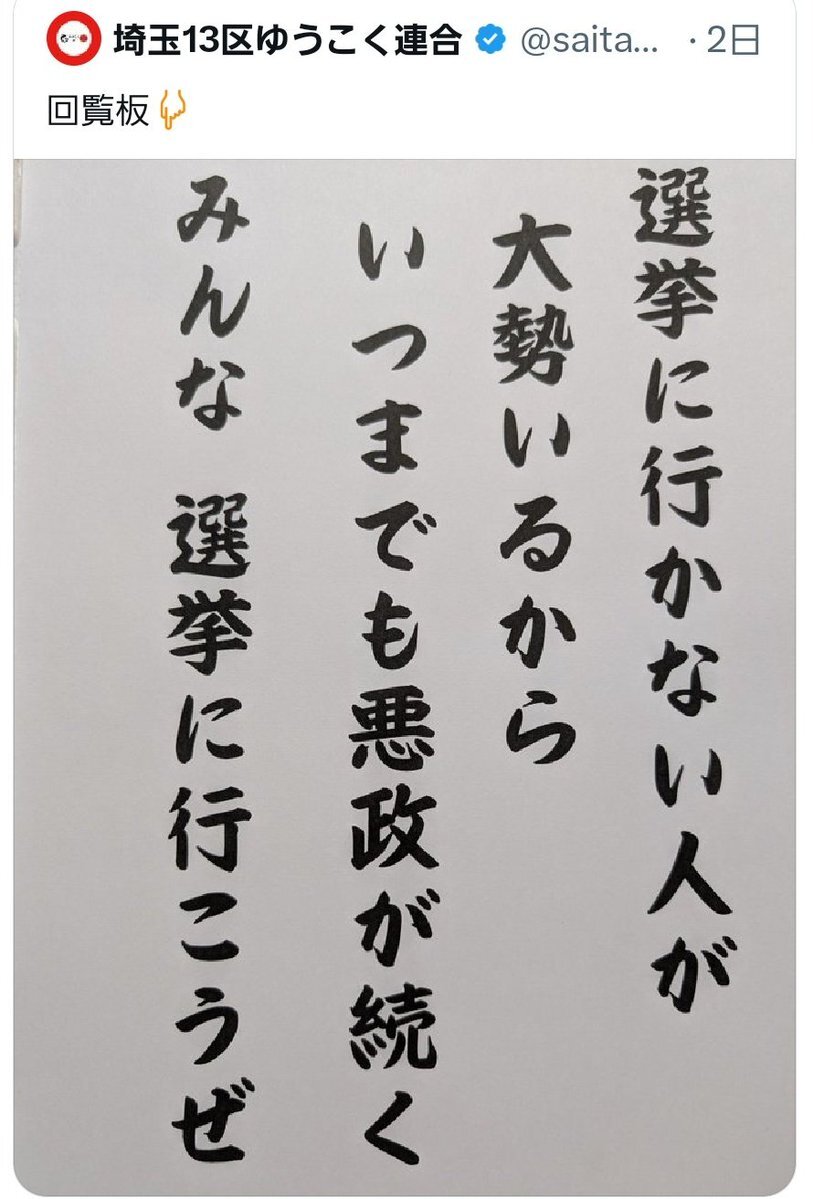 埼玉13区ゆうこく連合 @saita... ・2日
回覧板
選挙に行かない人が
大勢いるから
いつまでも悪政が続く
みんな 選挙に行こうぜ